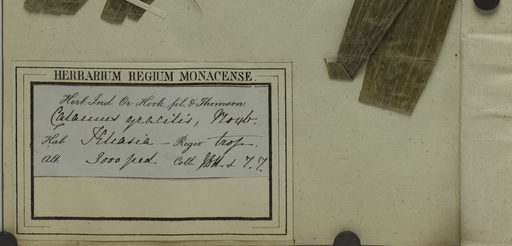 HERBARIUM REGIUM MONACENSE.
Herb. Ind. Or. Hook. fil. & Thomson.
Calamus gracilis, Roxb.
Hab. Khasia — Regio trop.
Alt. 3000 ped. Coll. J.D.H. & T.T.